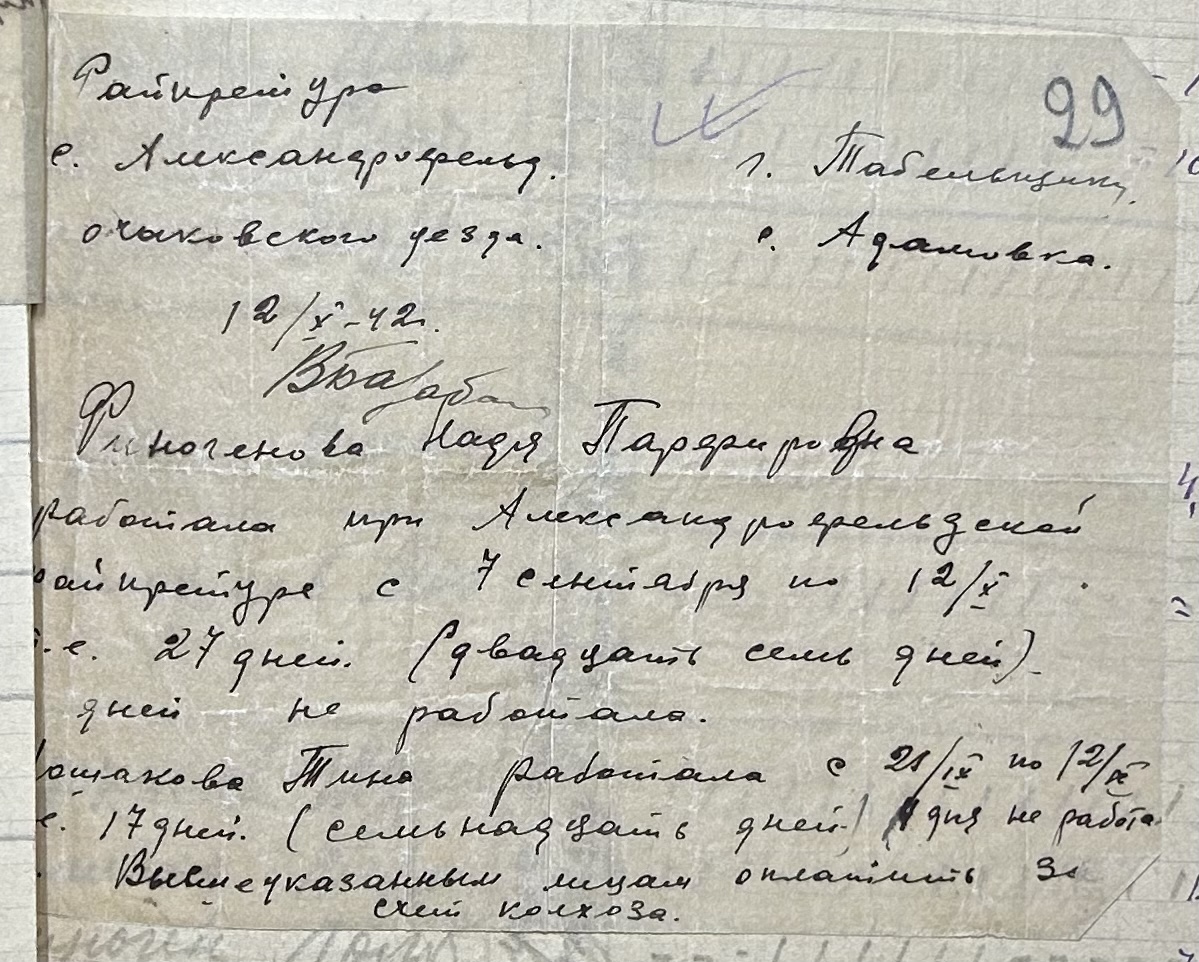 29
Райпретура
с. Александрофельд.
г. Табельщику.
очаковского уезда.
с. Адамовка.
12/X-42г.
Финогенова Надя Парфировна
работала при Александрофельдской
райпретуре с 7 сентября по 12/X
т.е. 27 дней. (двадцать семь дней).
дней не работала.
Тина работала с 21/IX по 12/X
е. 17 дней. (семьнадцать дней) дня не работа
Вышеуказанным лицам оплатить за
счет колхоза.